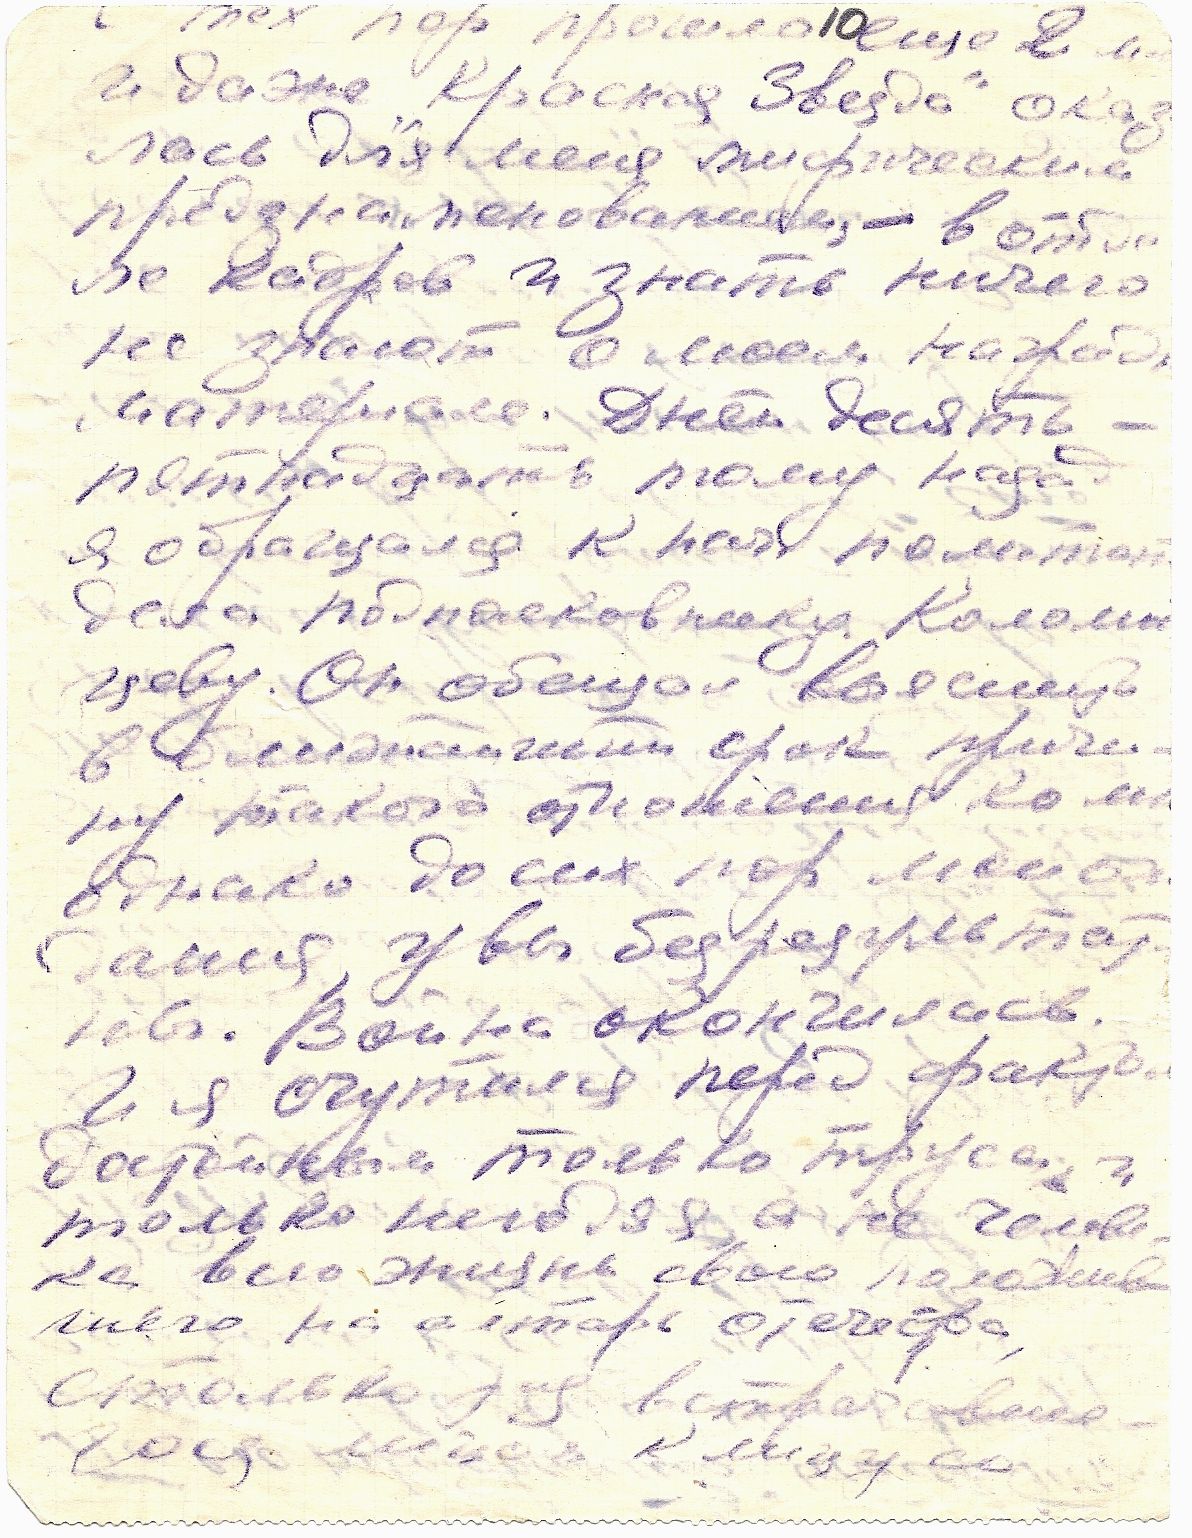 С тех пор прошло 10 еще 2 м
и даже „Красная Звезда" оказ
лась для меня мифическим
предзнаменованием, – в отде
ле кадров и знать ничего
не знают о моем наград.
материале. Дней десять –
пятнадцать тому назад
я обращался к нач политот
дела подполковнику Коломи
цеву. Он обещал выяснить
в ближайший срок причи-
ну такого отношения ко мн
однако до сих пор мои ож
дания, увы безрезультат
ны. Война окончилась.
И я очутился перед фактом
достойным только труса и
только негодяя, а не челове-
ка всю жизнь свою положив
шего на алтарь отечества,
столько раз встречавше-
гося лицом к лицу со